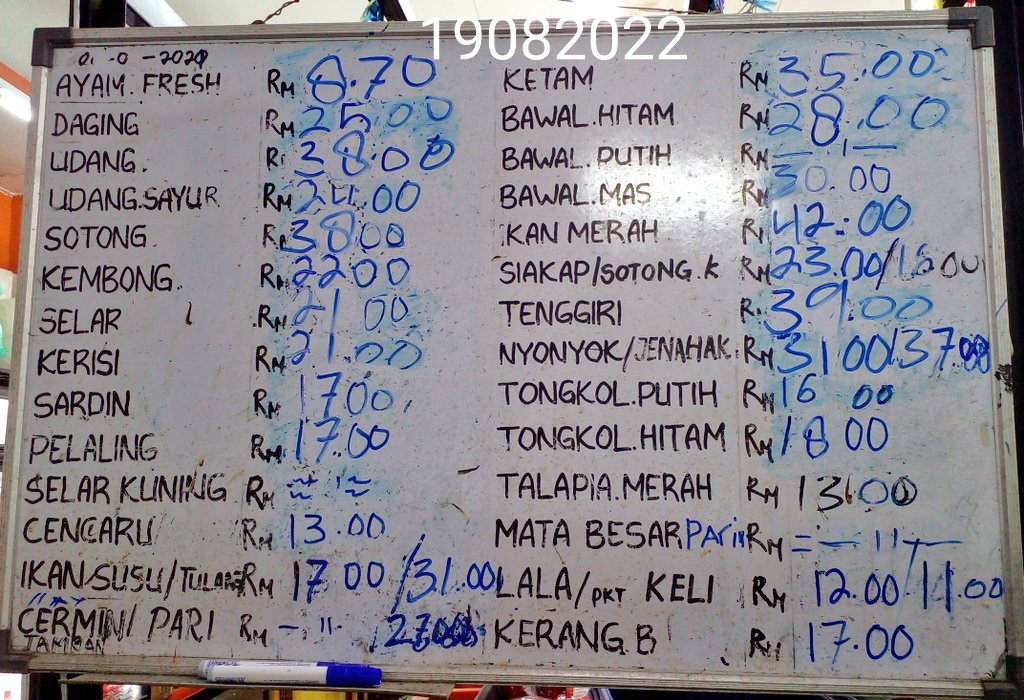 19082022
AYAM. FRESH RM 8.70
DAGING RM 25.00
UDANG. RM 38.00
UDANG.SAYUR RM 24.00
SOTONG. RM 38.00
KEMBONG. RM 22.00
SELAR RM 21.00
KERISI RM 21.00
SARDIN RM 17.00
PELALING RM 17.00
SELAR KUNING RM
CENCARU RM 13.00
IKAN SUSU/TULANG RM 17.00/31.00
CERMIN/ PARI RM - " 27.00
KETAM RM 35.00
BAWAL.HITAM RM 28.00
BAWAL.PUTIH RM — " —
BAWAL.MAS RM 30.00
IKAN MERAH RM 42.00
SIAKAP/SOTONG.K RM 23.00/
TENGGIRI RM 39.00
NYONYOK/JENAHAK. RM 31.00/37.00
TONGKOL.PUTIH RM 16 00
TONGKOL.HITAM RM 18 00
TALAPIA.MERAH RM 13.00
MATA BESAR RM
LALA/PKT KELI RM 12.00/11.00
KERANG.B RM 17.00